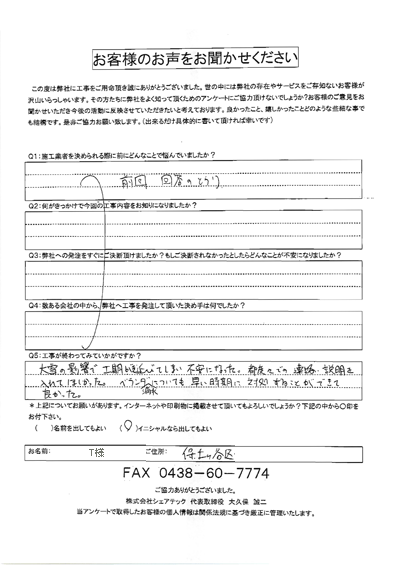 お客様のお声をお聞かせください
この度は弊社に工事をご用命頂き誠にありがとうございました。世の中には弊社の存在やサービスをご存知ない お客様が
沢山いらっしゃいます。その方たちに弊社をよく知って頂くためのアンケートにご協力頂けないでしょうか?お客様のご意見をお
聞かせいただき今後の活動に反映させていただきたいと考えております。良かったこと、嬉しかったことどのような些細な事で
も結構です。是非ご協力お願い致します。(出来るだけ具体的に書いて頂ければ幸いです)
Q1:施工業者を決められる際に前にどんなことで悩んでいましたか?
前回 回答のとおり
Q2:何がきっかけで今回の工事内容をお知りになりましたか?
Q3:弊社への発注をすぐにご決断頂けましたか?もしご決断されなかったとしたらどんなことが不安になりましたか?
Q4:数ある会社の中から、弊社へ工事を発注して頂いた決め手は何でしたか?
Q5:工事が終わってみていかがですか?
大雪の影響で工期が延びてしまい不安になった。都度での連絡、説明を
入れてほしかった。ベランダ漏水についても早い時期に対処することができて
良かった。
*上記についてお願いがあります。インターネットや印刷物に掲載させて頂いてもよろしいでしょうか?下記の中から〇印を
お付下さい。
( )名前を出してもよい (〇)イニシャルなら出してもよい
お名前: T様 ご住所: 保土ヶ谷区
FAX 0438-60-7774
ご協力ありがとうございました。
株式会社シェアテック 代表取締役 大久保 誠二
当アンケートで取得したお客様の個人情報は関係法規に基づき厳正に管理いたします。